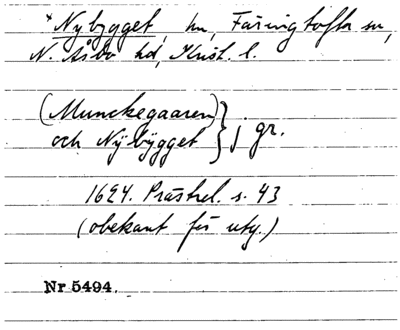 *Nybygget, hn, Färingtofta sn,
N. Åsbo hd, Krist. l.
(Munckegaaren)
och Nÿbÿgget } j gr.
1624. Prästrel. s. 43
(obekant för utg.)
Nr 5494.